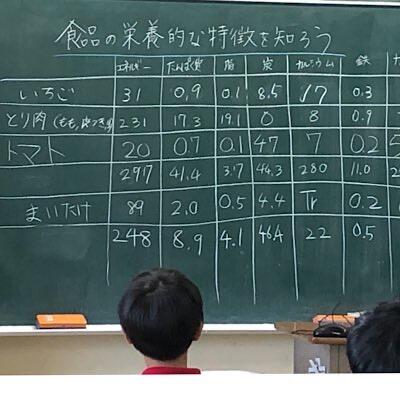 食品の栄養的な特徴を知ろう
エネルギー たんぱく質 脂 炭 カルシウム 鉄
いちご 31 0.9 0.1 8.5 17 0.3
とり肉 231 17.3 19.1 0 8 0.9
トマト 20 0.7 0.1 47 7 0.2
2917 41.4 3.7 44.3 280 11.0
まいたけ 89 2.0 0.5 4.4 Tr 0.2
248 8.9 4.1 46.4 22 0.5